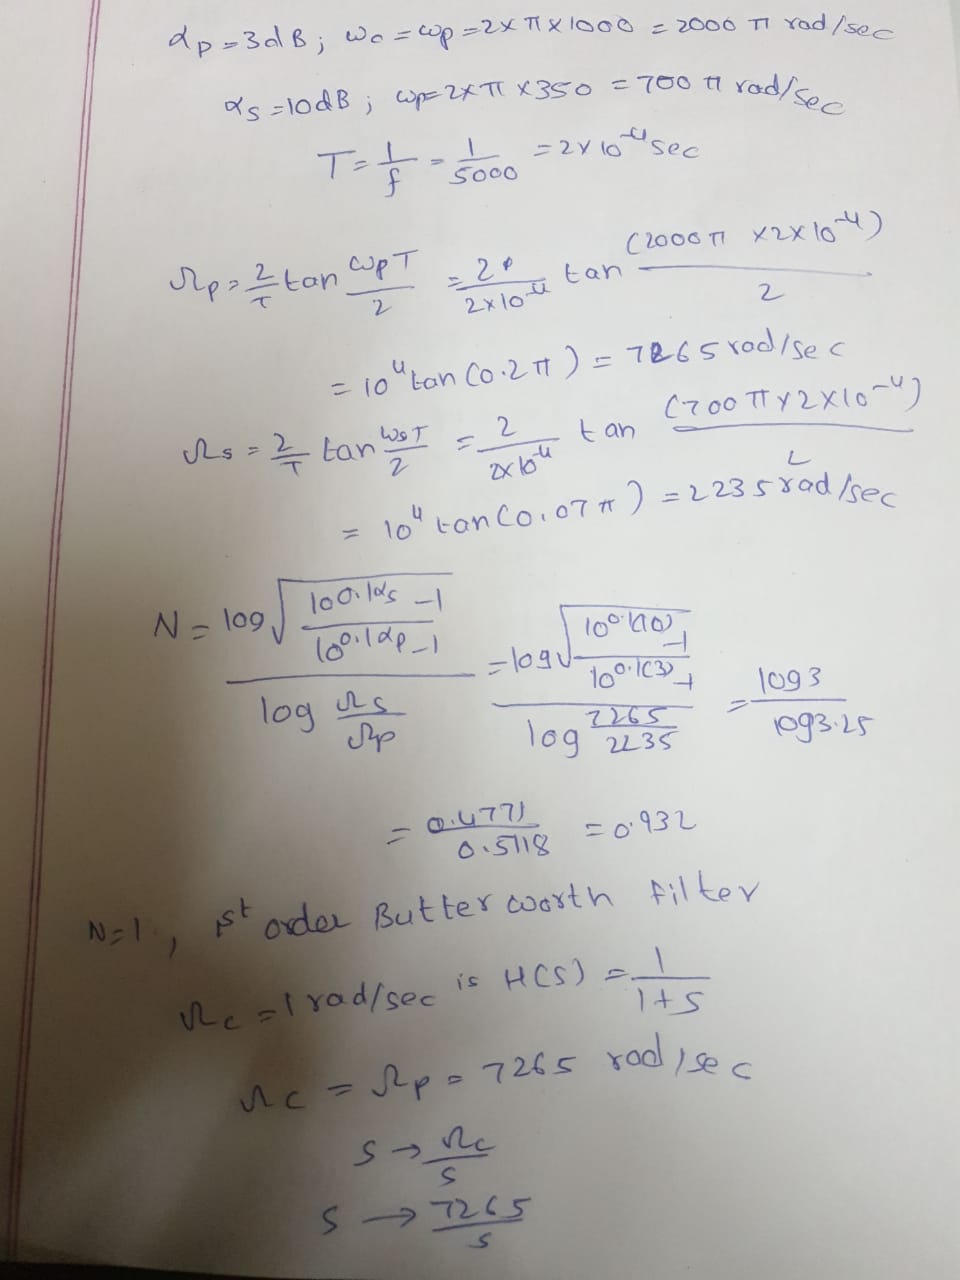 αp = 3dB ; ωc = ωp = 2×π×1000 = 2000 π rad/sec
αs = 10dB ; ωp = 2×π×350 = 700 π rad/sec
T = 1/f = 1/5000 = 2×10^-4 sec
Ωp = 2/T tan ωpT/2 = 2/(2×10^-4) tan (2000π ×2×10^-4)/2
= 10^4 tan (0.2π) = 7265 rad/sec
Ωs = 2/T tan ωsT/2 = 2/(2×10^-4) tan (700π×2×10^-4)/2
= 10^4 tan(0.07π) = 2235 rad/sec
N = log √((10^0.1αs -1)/(10^0.1αp -1)) / log Ωs/Ωp = log √((10^0.1(10) -1)/(10^0.1(3) -1)) / log 7265/2235 = log3/log3.25
= 0.4771/0.5118 = 0.932
N=1, 1st order Butter worth filter
Ωc = 1 rad/sec is H(S) = 1/(1+S)
Ωc = Ωp = 7265 rad/sec
S → Ωc/S
S → 7265/S